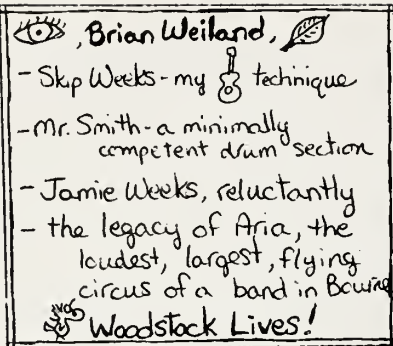 , Brian Weiland,
- Skip Weeks - my technique
- Mr. Smith - a minimally
competent drum section
- Jamie Weeks, reluctantly
- the legacy of Aria, the
loudest, largest, flying
circus of a band in Bourne
Woodstock Lives!